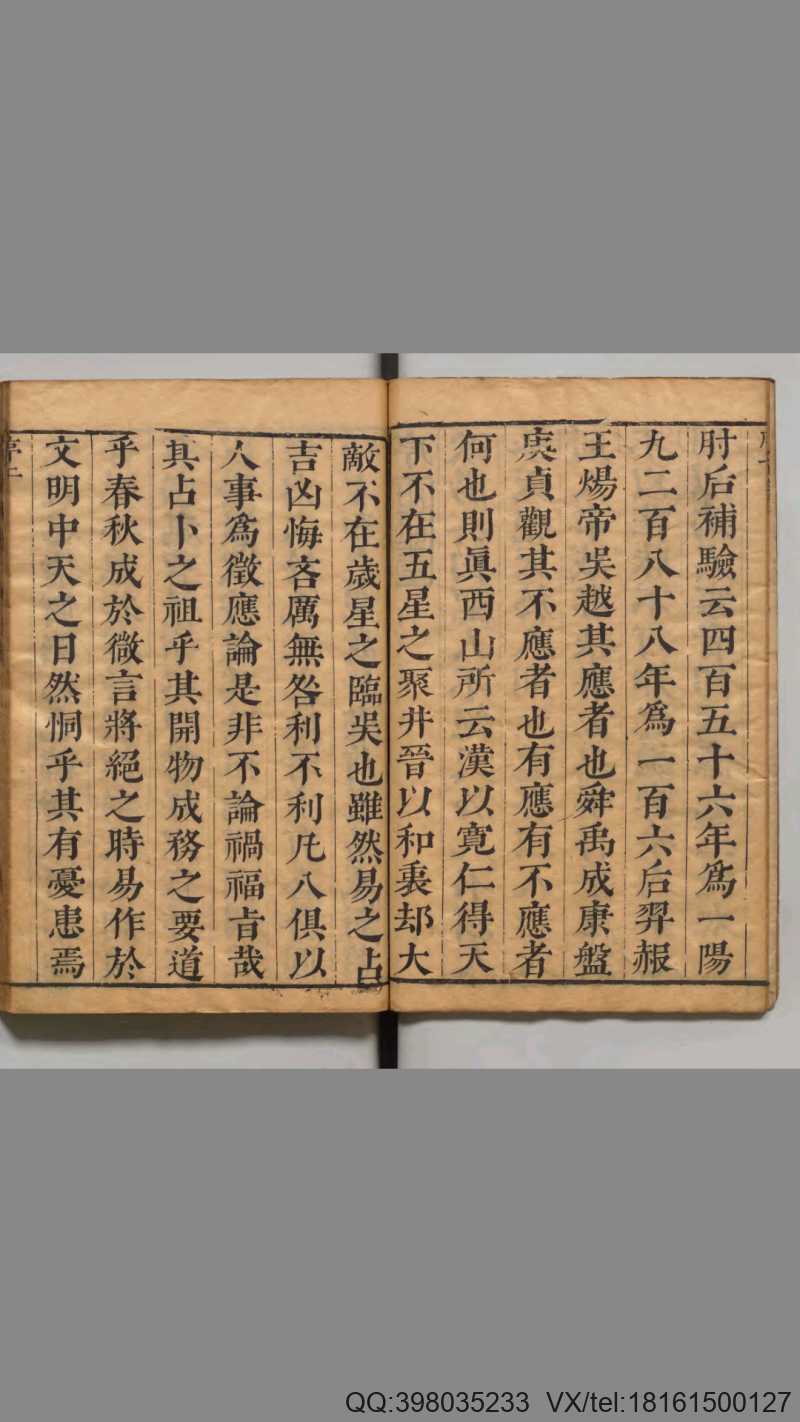 肘后補驗云四百五十六年爲一陽
九二百八十八年爲一百六后羿赧
王煬帝吳越其應者也舜禹成康盤
庚貞觀其不應者也有應有不應者
何也則眞西山所云漢以寬仁得天
下不在五星之聚井晉以和衷却大
敵不在歲星之臨吳也雖然易之占
吉凶悔吝厲無咎利不利凡八俱以
人事爲徵應論是非不論禍福旨哉
其占卜之祖乎其開物成務之要道
乎春秋成於微言將絕之時易作於
文明中天之日然恫乎其有憂患焉
QQ:398035233 VX/tel:18161500127